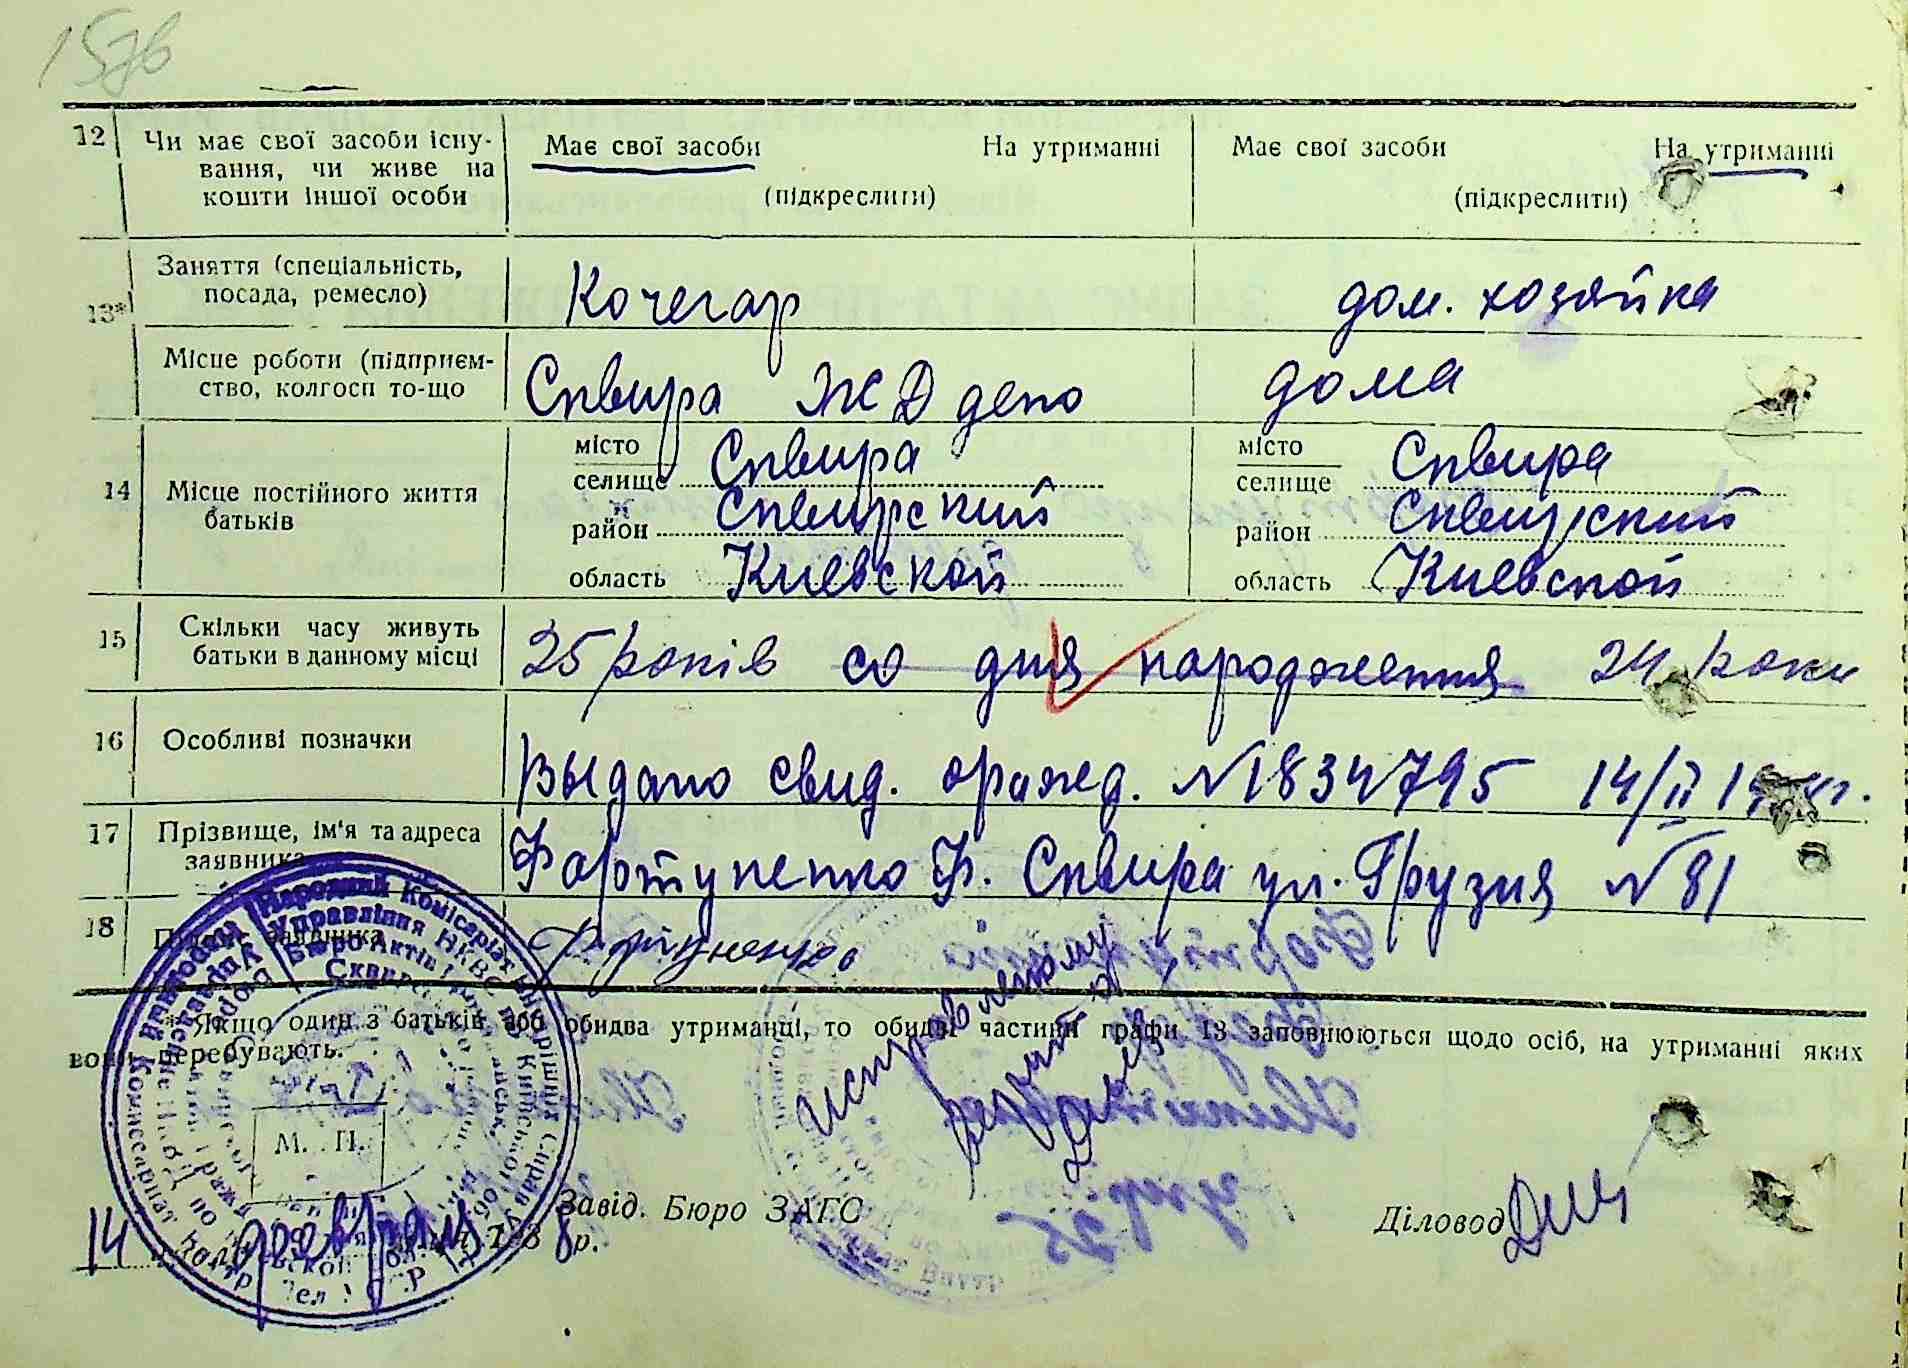 157в
12 Чи має свої засоби існу-
вання, чи живе на
кошти іншої особи
Має свої засоби На утриманні
(підкреслити)
Має свої засоби На утриманні
(підкреслити)
13* Заняття (спеціальність,
посада, ремесло)
Кочегар
дом. хозяйка
Місце роботи (підприєм-
ство, колгосп то-що
Сквира ЖД депо
дома
14 Місце постійного життя
батьків
місто
селище Сквира
район Сквирский
область Киевской
місто
селище Сквира
район Сквирский
область Киевской
15 Скільки часу живуть
батьки в данному місці
25 років со дня народження 24 роки
16 Особливі позначки
Выдано свид. о рожд. №1834795 14/II
17 Прізвище, ім'я та адреса
заявника
Фортуненко Ф. Сквира ул. Грузия №81
18 Підпис заявника
Фортуненко
* Якщо один з батьків або обидва утриманці, то обидві частини графи 13 заповнюються щодо осіб, на утриманні яких
вони перебувають.
исправленому
верить
Народний Комісаріат Внутрішніх Справ
Управління НКВС по Київській
Бюро Актів
М. П.
Завід. Бюро ЗАГС
Діловод
14 февраля 193 8 р.